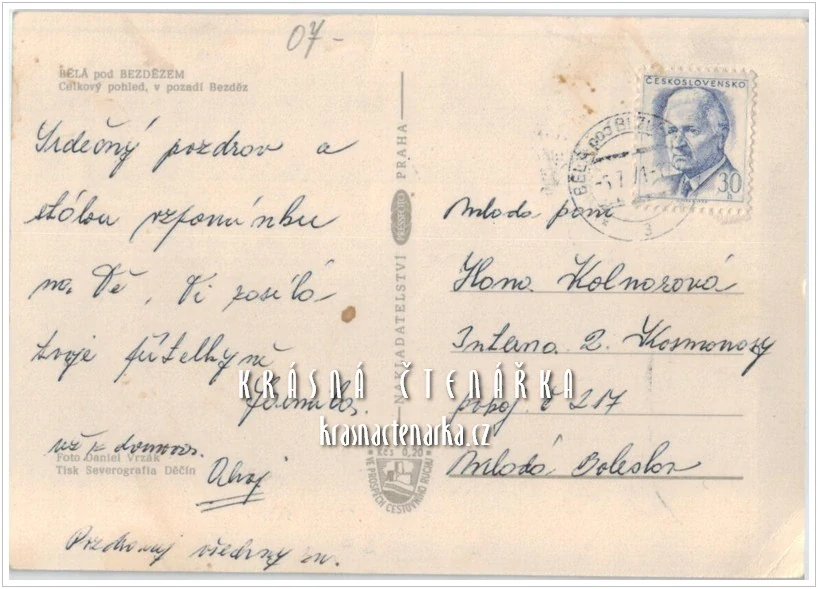 07-
BĚLÁ pod BEZDĚZEM
Celkový pohled, v pozadí Bezděz
Srdečný pozdrav a
stálou vzpomínku
na Tě, Ti posílá
tvoje přítelkyně
Jarmila.
už z domova.
Ahoj
Pozdravuj všechny
Foto Daniel Vrzák
Tisk Severografia Děčín
NAKLADATELSTVÍ PRESSFOTO PRAHA
Kčs 0,20
VE PROSPĚCH CESTOVNÍHO RUCHU
KRÁSNÁ ČTENÁŘKA
krasnactenarka.cz
ČESKOSLOVENSKO
30
h
BĚLÁ pod BEZD
-5.7.71-
3
Mladá paní
Hana Kolnarová
Interna 2. Kosmonosy
pokoj. č 217
Mladá Boleslav